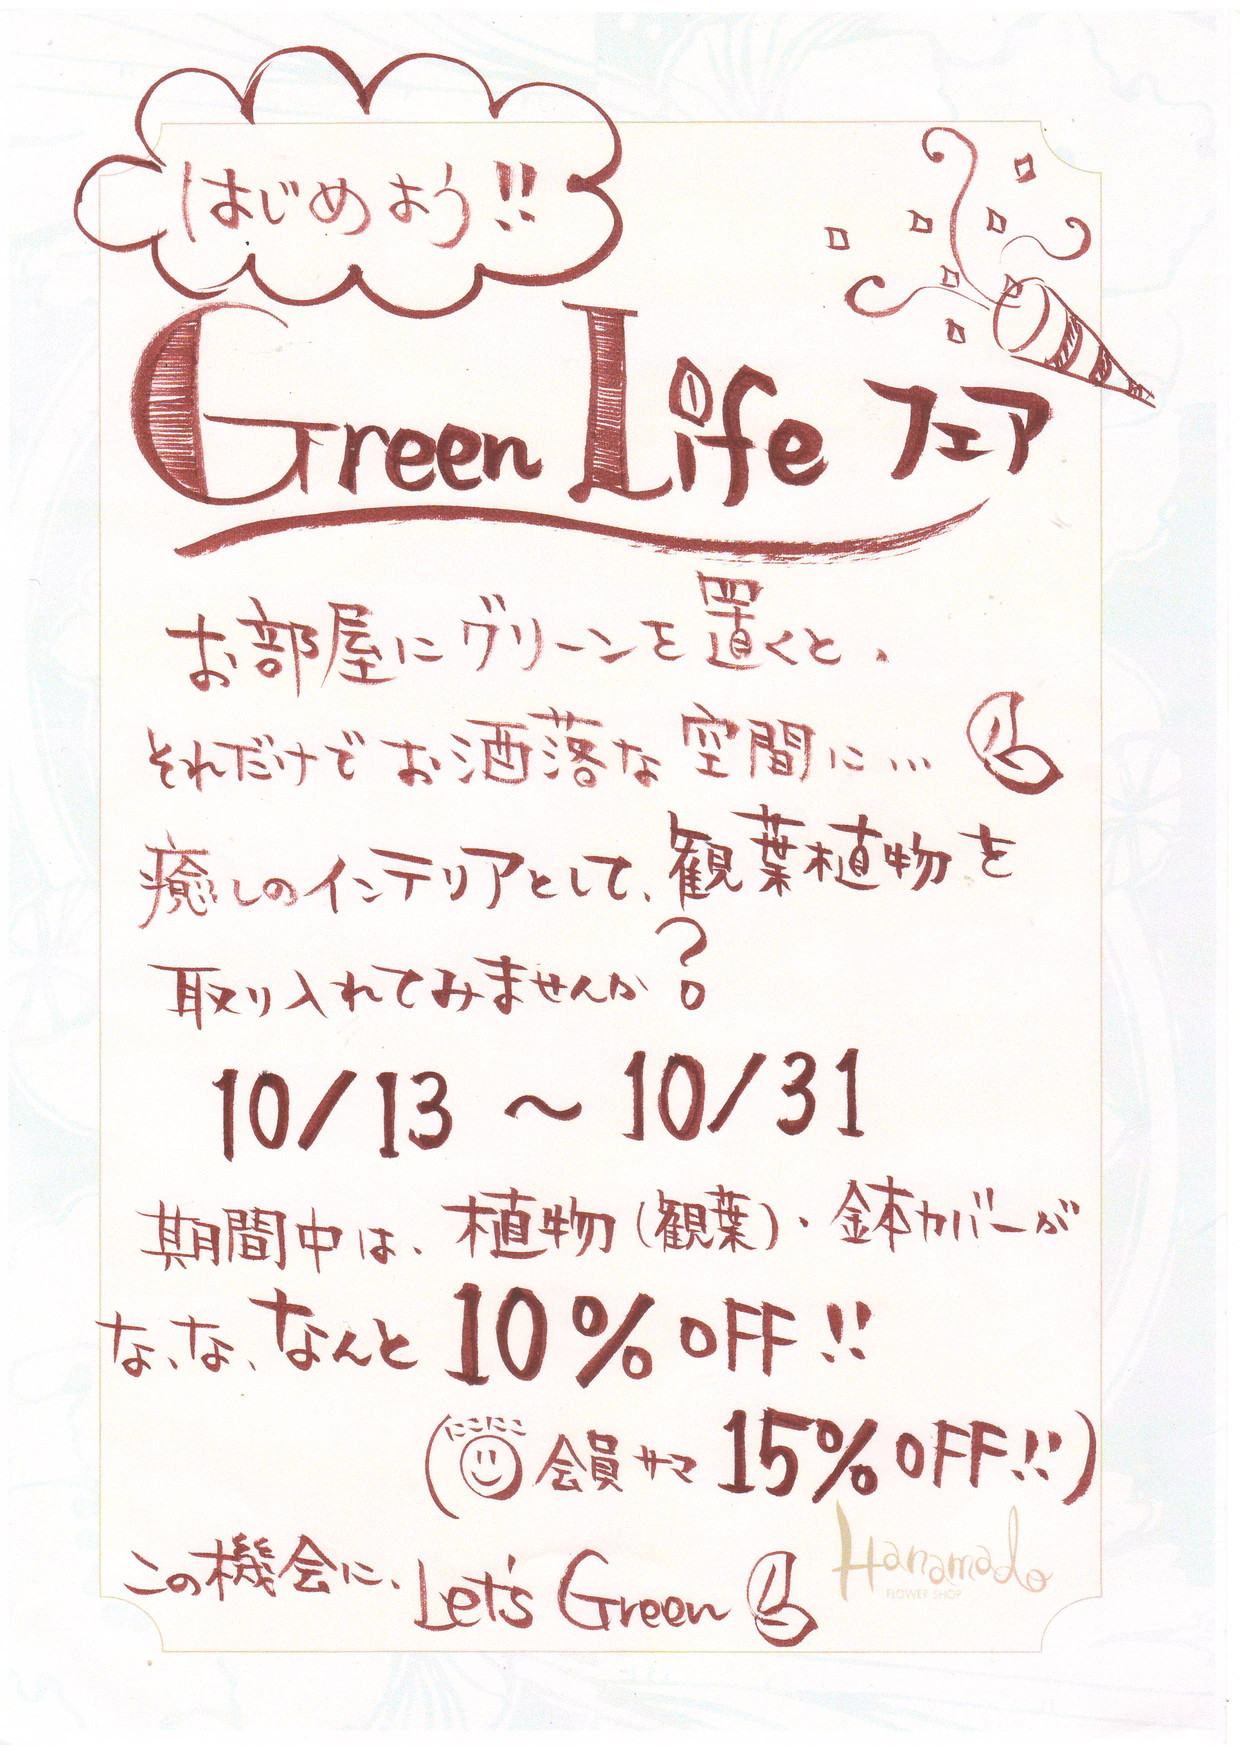 はじめよう!!
Green Life フェア
お部屋にグリーンを置くと、
それだけでお洒落な空間に…
癒しのインテリアとして、観葉植物を
取り入れてみませんか?
10/13 〜 10/31
期間中は、植物(観葉)・鉢カバーが
な、な、なんと 10% OFF!!
にこにこ
(会員サマ 15% OFF!!)
この機会に、Let's Green
Hanamado
FLOWER SHOP